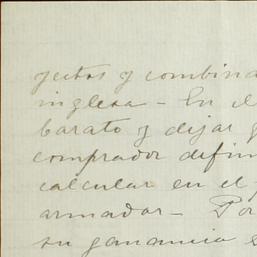 yectos y combina
inglesa - En el
barato y dejar
comprador defin
calcular en el
armador - Por
su ganancia e